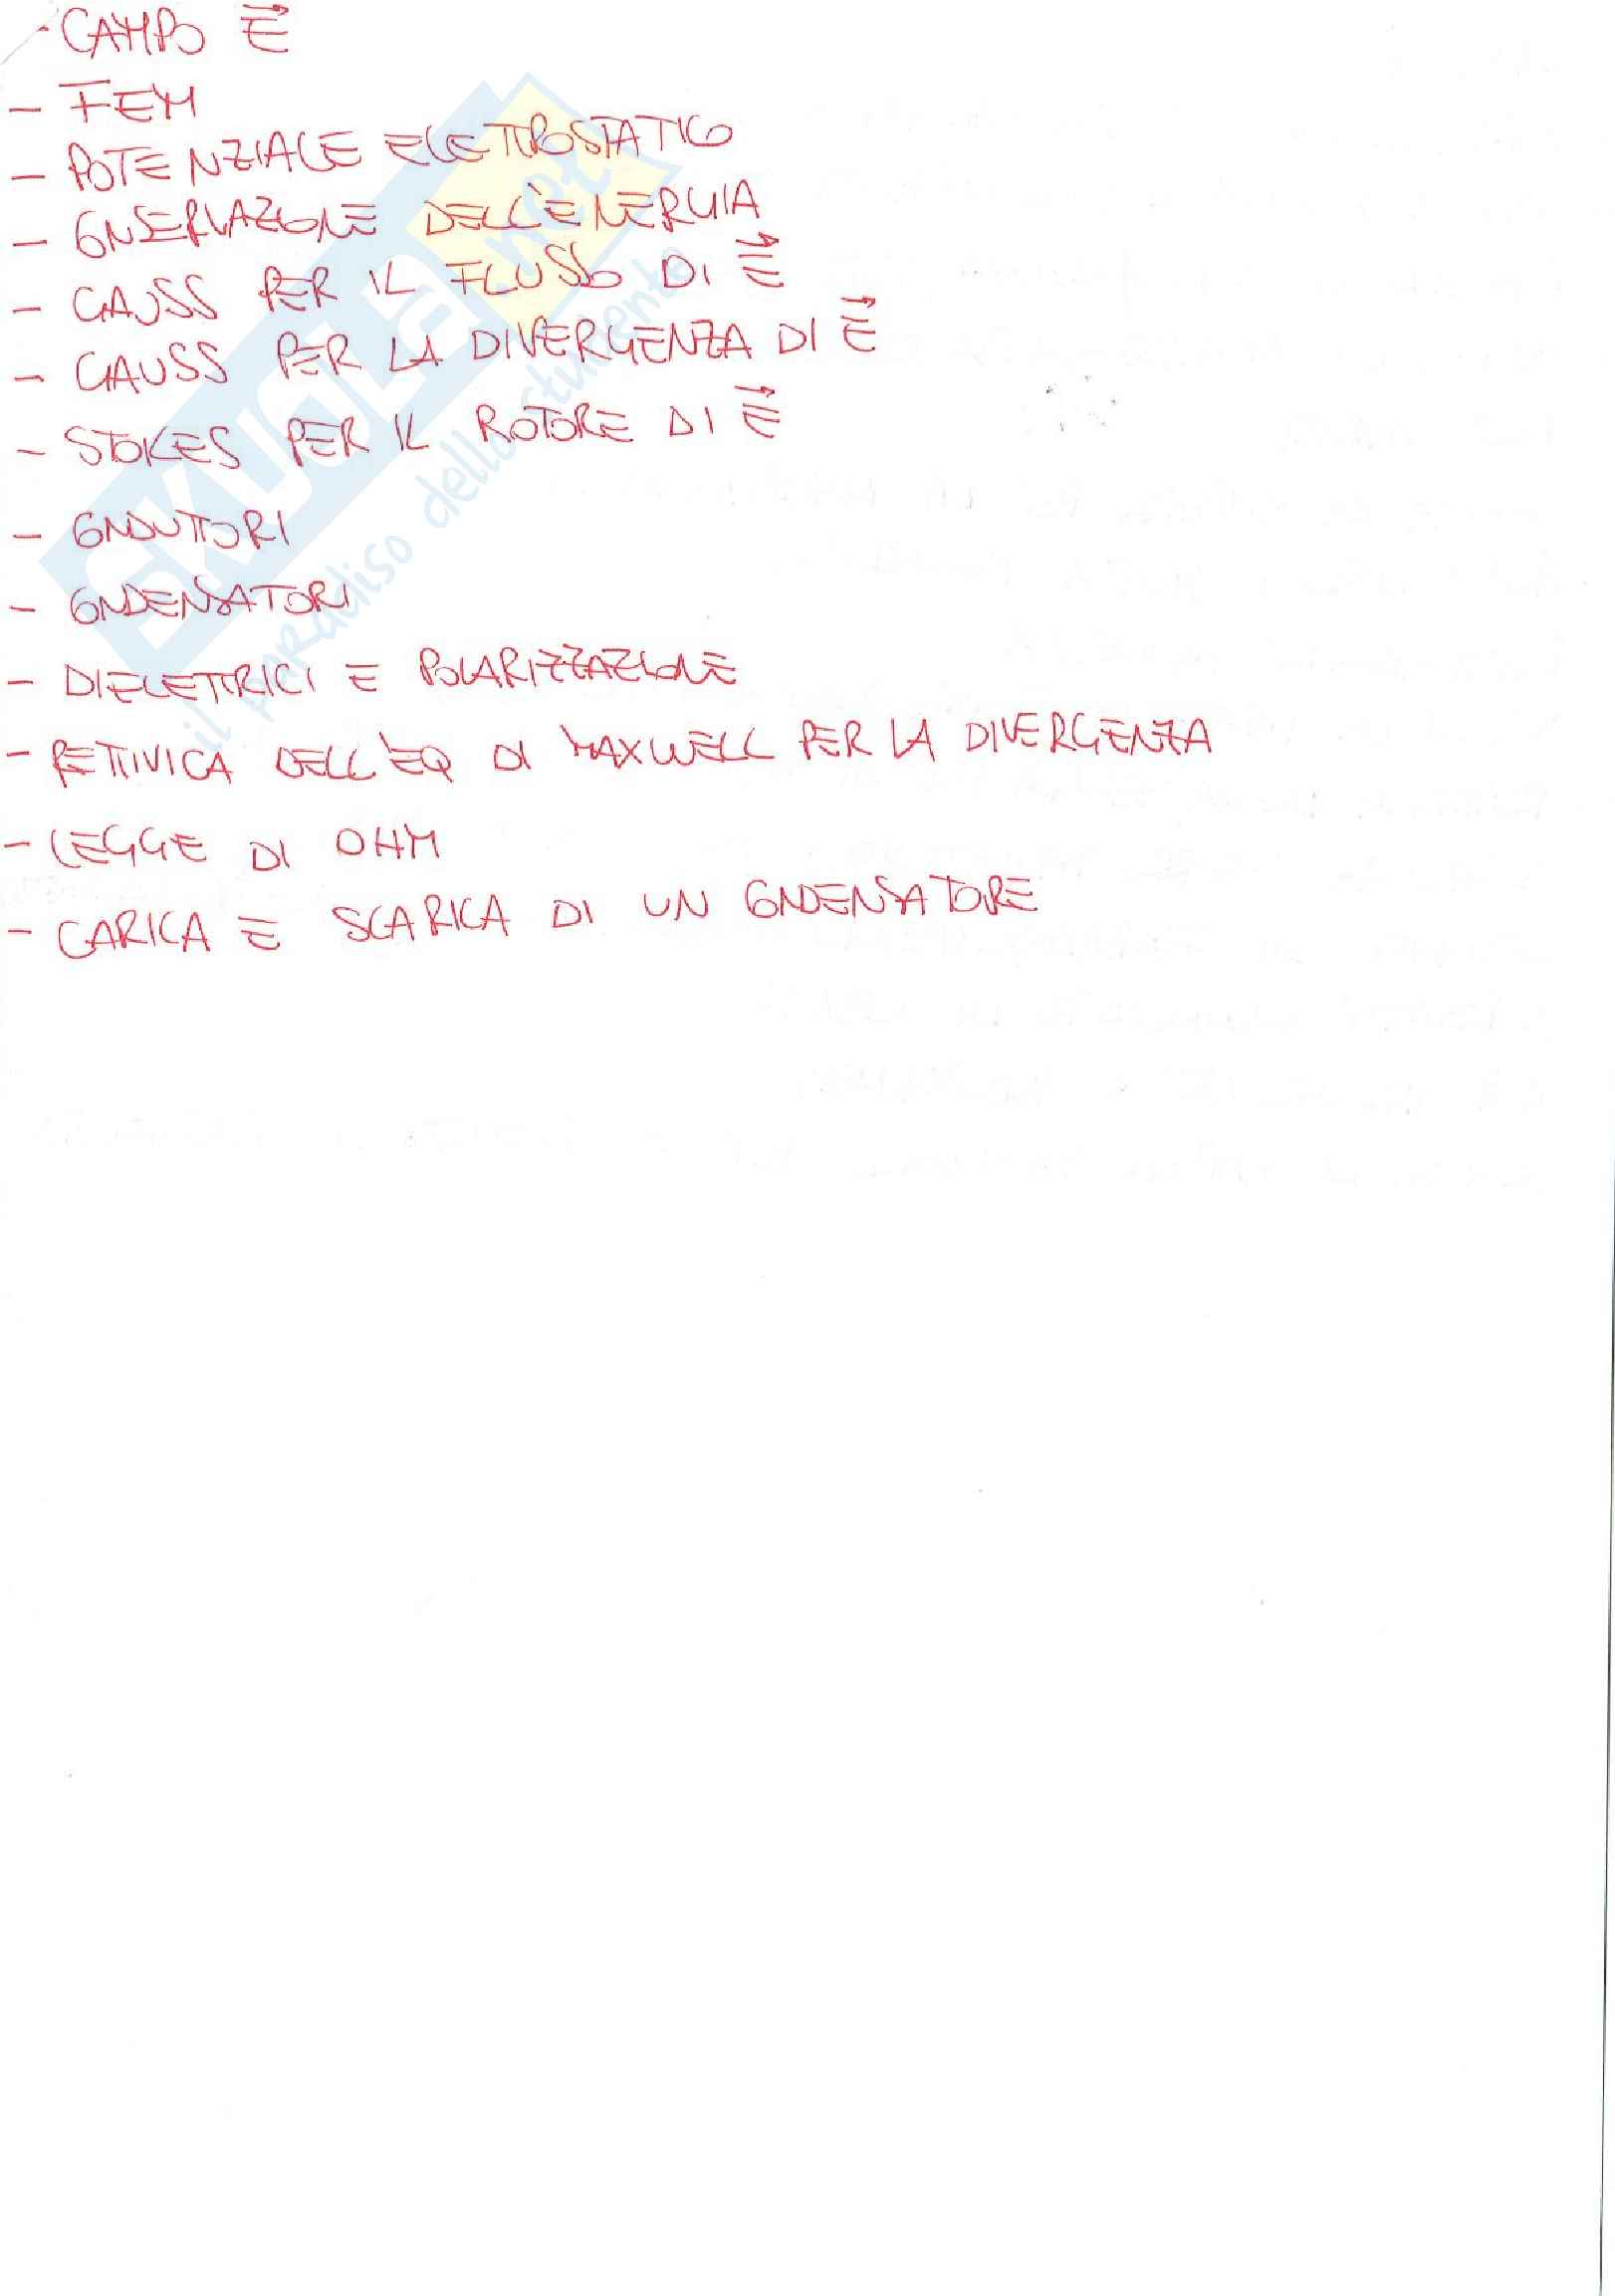 - CAMPO E⃗
- FEM
- POTENZIALE ELETTROSTATICO
- CONSERVAZIONE DELL'ENERGIA
- GAUSS PER IL FLUSSO DI E⃗
- GAUSS PER LA DIVERGENZA DI E⃗
- STOKES PER IL ROTORE DI E⃗
- CONDUTTORI
- CONDENSATORI
- DIELETTRICI E POLARIZZAZIONE
- RETTIVICA DELL'EQ DI MAXWELL PER LA DIVERGENZA
- LEGGE DI OHM
- CARICA E SCARICA DI UN CONDENSATORE
SKUOLA.net
il paradiso dello studente